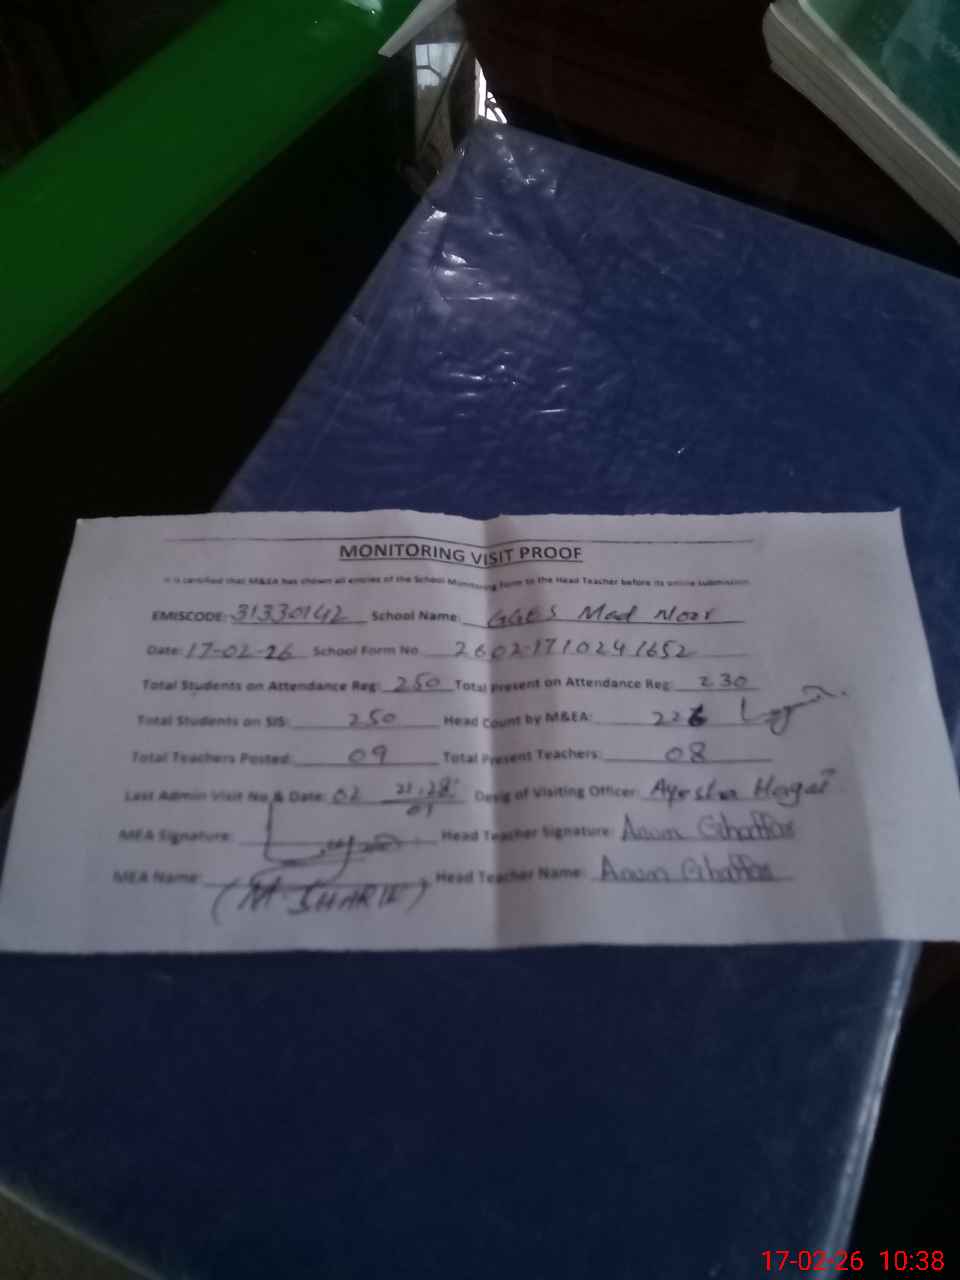 MONITORING VISIT PROOF
It is certified that M&EA has shown all entries of the School Monitoring Form to the Head Teacher before its online submission
EMISCODE: 31330142 School Name: GGES Mad Noor
Date: 17-02-26 School Form No 2602-1710241652
Total Students on Attendance Reg: 250 Total Present on Attendance Reg: 230
Total Students on SIS: 250 Head Count by M&EA: 226
Total Teachers Posted: 09 Total Present Teachers: 08
Last Admin Visit No & Date: 02 Desig of Visiting Officer: Ayesha
MEA Signature: Head Teacher Signature: Anum Ghaffar
MEA Name: Head Teacher Name: Anum Ghaffar
17-02-26 10:38